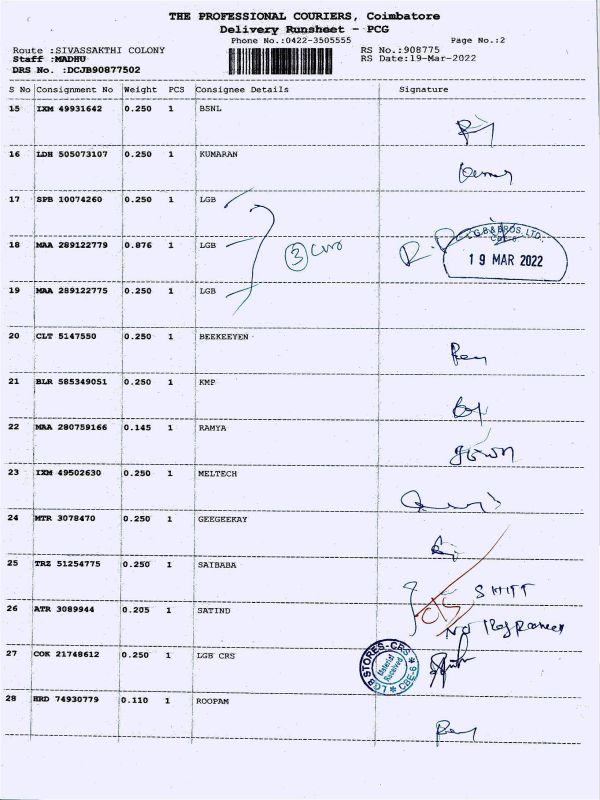 THE PROFESSIONAL COURIERS, Coimbatore
Delivery Runsheet - PCG
Phone No.:0422-3505555 Page No.:2
Route :SIVASSAKTHI COLONY RS No.:908775
Staff :MADHU RS Date:19-Mar-2022
DRS No. :DCJB90877502
S No Consignment No Weight PCS Consignee Details Signature
15 IXM 49931642 0.250 1 BSNL
16 LDH 505073107 0.250 1 KUMARAN
17 SPB 10074260 0.250 1 LGB
L.G.B & BROS. LTD.
CBE-6
18 MAA 289122779 0.876 1 LGB 3 19 MAR 2022
19 MAA 289122775 0.250 1 LGB
20 CLT 5147550 0.250 1 BEEKEEYEN
21 BLR 585349051 0.250 1 KMP
22 MAA 280759166 0.145 1 RAMYA
23 IXM 49502630 0.250 1 MELTECH
24 MTR 3078470 0.250 1 GEEGEEKAY
25 TRZ 51254775 0.250 1 SAIBABA
26 ATR 3089944 0.205 1 SATIND
No
27 COK 21748612 0.250 1 LGB CRS
LGB STORES-CRS
Material
Received
CBE-6
28 HRD 74930779 0.110 1 ROOPAM